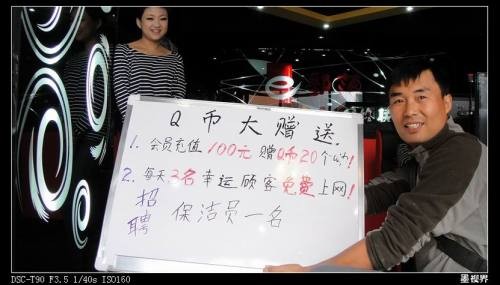 Q币大赠送.
1. 会员充值100元赠Q币20个!
2. 每天2名幸运顾客免费上网!
招聘 保洁员一名
DSC-T90 F3.5 1/40s ISO160
墨视界